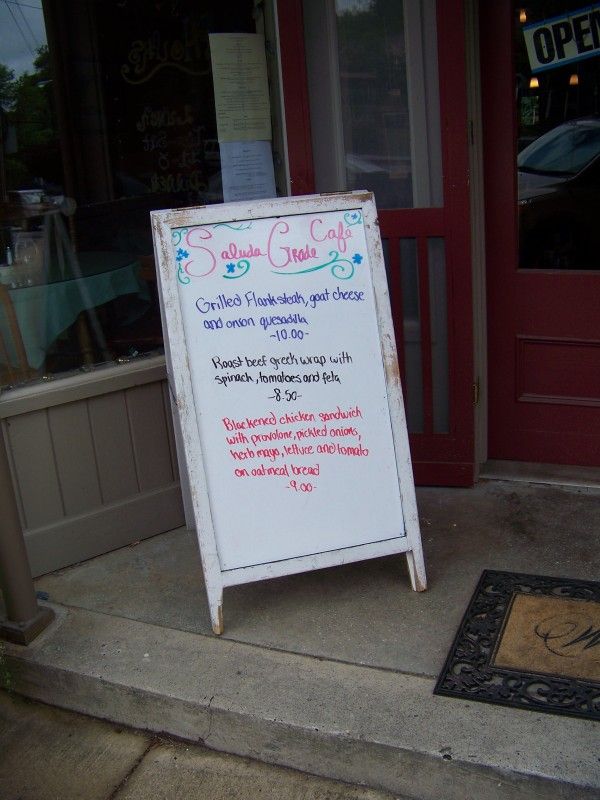 OPEN
Saluda Grade Café
Grilled Flanksteak, goat cheese
and onion quesadilla
~10.00~
Roast beef greek wrap with
spinach, tomatoes and feta
~8.50~
Blackened chicken sandwich
with provolone, pickled onions,
herb mayo, lettuce and tomato
on oatmeal bread
~9.00~